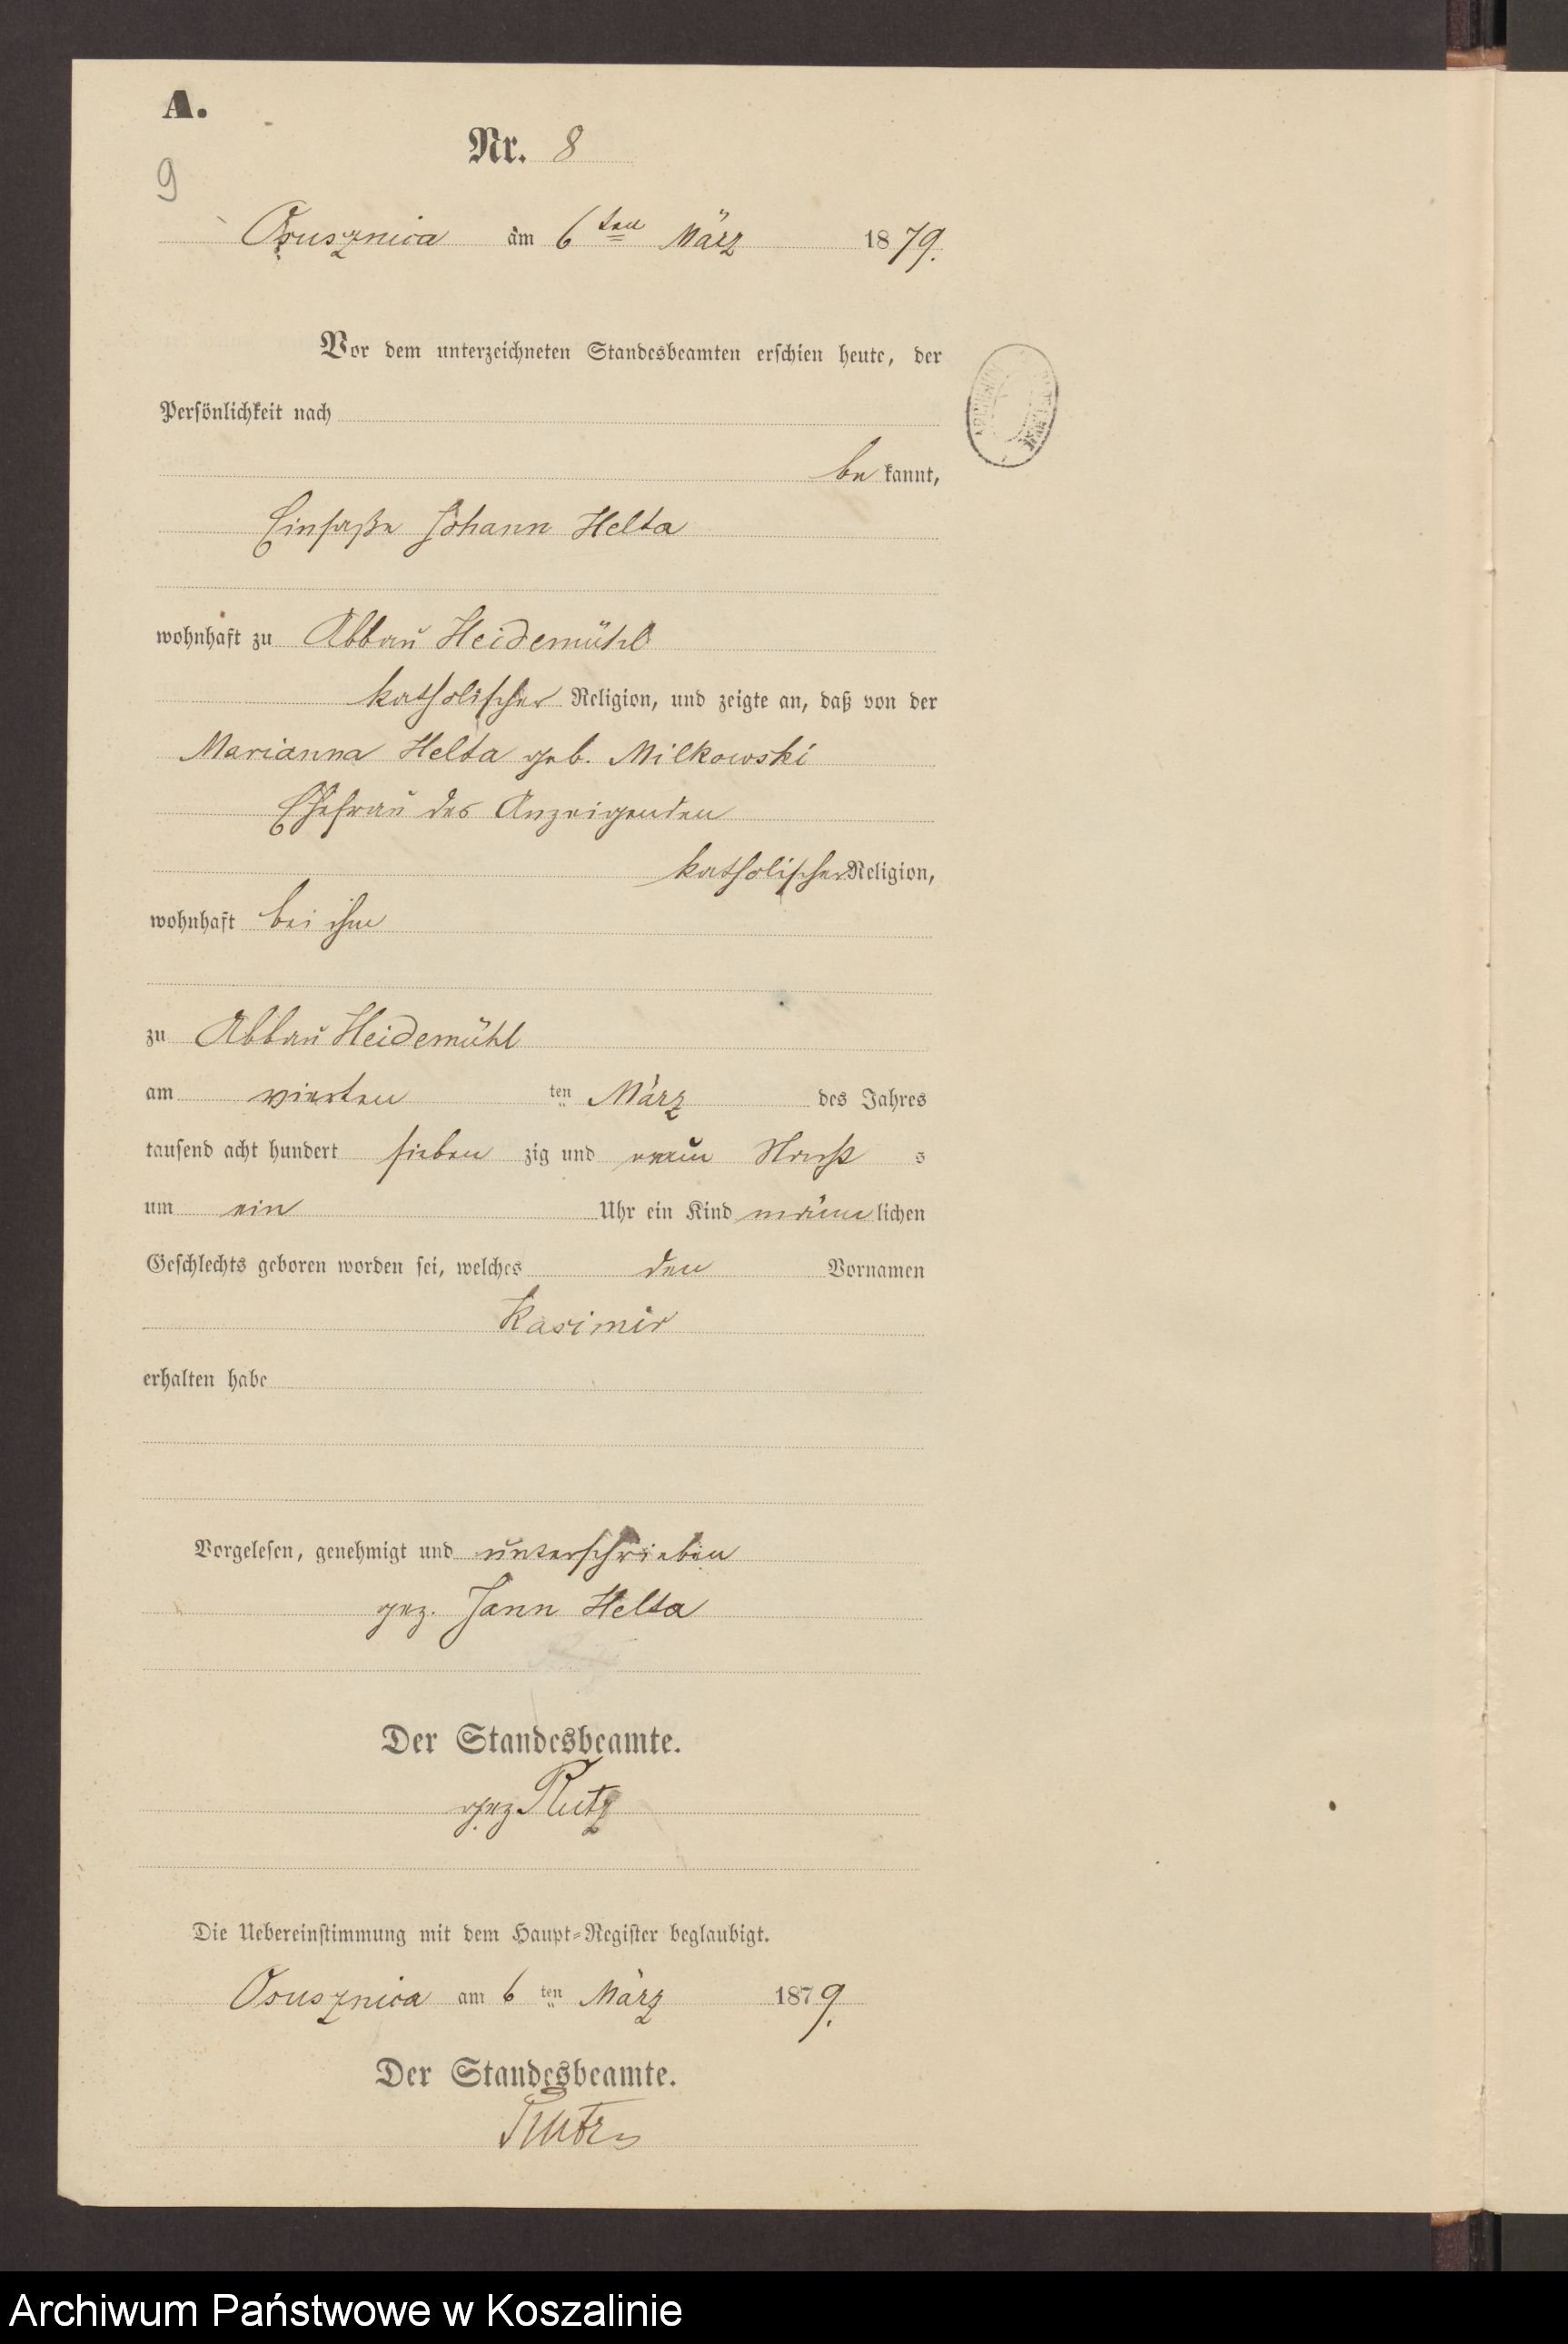 A.
Nr. 8
9
Osusznica am 6ten März 1879.
Vor dem unterzeichneten Standesbeamten erschien heute, der
Persönlichkeit nach
be kannt,
Einsaße Johann Helta
wohnhaft zu Abbau Heidemühl
katholischer Religion, und zeigte an, daß von der
Marianna Helta geb. Milkowski
Ehefrau des Anzeigenden
katholischer Religion,
wohnhaft bei ihm
zu Abbau Heidemühl
am vierten ten März des Jahres
tausend acht hundert sieben zig und neun Nachts
um ein Uhr ein Kind männlichen
Geschlechts geboren worden sei, welches den Vornamen
Kasimir
erhalten habe
Vorgelesen, genehmigt und unterschrieben
gez. Jann Helta
Der Standesbeamte.
gez. Rutz
Die Uebereinstimmung mit dem Haupt=Register beglaubigt.
Osusznica am 6 ten März 1879.
Der Standesbeamte.
Rutz
Archiwum Państwowe w Koszalinie